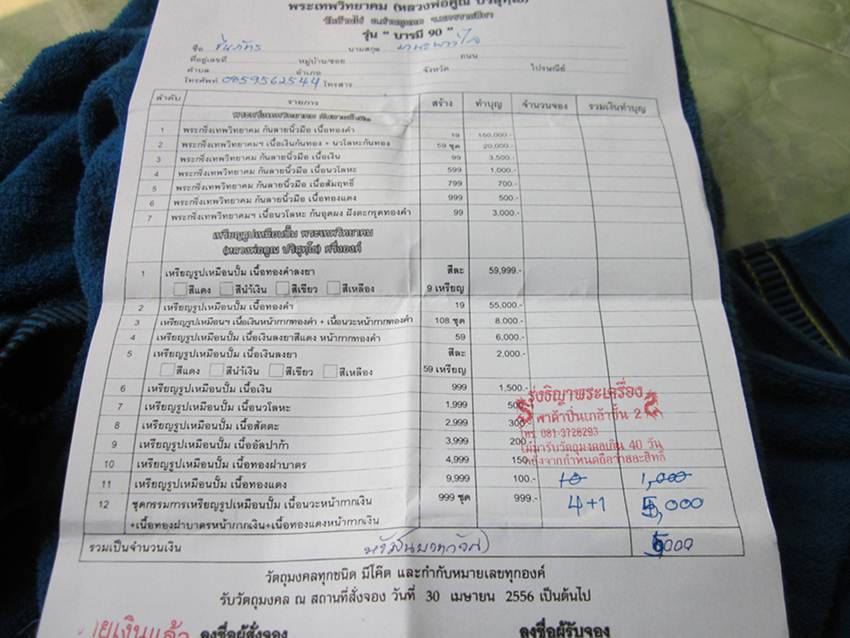 พระเทพวิทยาคม (หลวงพ่อคูณ ปริสุทฺโธ)
รุ่น " บารมี 90 "
ชื่อ นามสกุล
ที่อยู่เลขที่ หมู่บ้าน/ซอย ถนน
ตำบล อำเภอ จังหวัด ไปรษณีย์
โทรศัพท์ 0859562544 โทรสาร
ลำดับ รายการ สร้าง ทำบุญ จำนวนจอง รวมเงินทำบุญ
1 พระกริ่งเทพวิทยาคม ก้นลายนิ้วมือ เนื้อทองคำ 19 150,000.-
2 พระกริ่งเทพวิทยาคมฯ เนื้อเงินก้นทอง + นวโลหะก้นทอง 59 ชุด 20,000.-
3 พระกริ่งเทพวิทยาคม ก้นลายนิ้วมือ เนื้อเงิน 99 3,500.-
4 พระกริ่งเทพวิทยาคม ก้นลายนิ้วมือ เนื้อนวโลหะ 599 1,000.-
5 พระกริ่งเทพวิทยาคม ก้นลายนิ้วมือ เนื้อสัมฤทธิ์ 799 700.-
6 พระกริ่งเทพวิทยาคม ก้นลายนิ้วมือ เนื้อทองแดง 999 500.-
7 พระกริ่งเทพวิทยาคมฯ เนื้อนวโลหะ ก้นอุดผง ฝังตะกรุดทองคำ 99 3,000.-
เหรียญรูปเหมือนปั๊ม พระเทพวิทยาคม
(หลวงพ่อคูณ ปริสุทฺโธ) ครึ่งองค์
1 เหรียญรูปเหมือนปั๊ม เนื้อทองคำลงยา สีละ 59,999.-
สีแดง สีน้ำเงิน สีเขียว สีเหลือง 9 เหรียญ
2 เหรียญรูปเหมือนปั๊ม เนื้อทองคำ 19 55,000.-
3 เหรียญรูปเหมือนฯ เนื้อเงินหน้ากากทองคำ + เนื้อนวะหน้ากากทองคำ 108 ชุด 8,000.-
4 เหรียญรูปเหมือนปั๊ม เนื้อเงินลงยาสีแดง หน้ากากทองคำ 59 6,000.-
5 เหรียญรูปเหมือนปั๊ม เนื้อเงินลงยา สีละ 2,000.-
สีแดง สีน้ำเงิน สีเขียว สีเหลือง 59 เหรียญ
6 เหรียญรูปเหมือนปั๊ม เนื้อเงิน 999 1,500.-
7 เหรียญรูปเหมือนปั๊ม เนื้อนวโลหะ 1,999 500.-
8 เหรียญรูปเหมือนปั๊ม เนื้อสัตตะ 2,999 300.-
9 เหรียญรูปเหมือนปั๊ม เนื้ออัลปาก้า 3,999 200.-
10 เหรียญรูปเหมือนปั๊ม เนื้อทองฝาบาตร 4,999 150.-
11 เหรียญรูปเหมือนปั๊ม เนื้อทองแดง 9,999 100.- 10 1,000
12 ชุดกรรมการเหรียญรูปเหมือนปั๊ม เนื้อนวะหน้ากากเงิน 999 ชุด 999.- 4+1 5,000
+เนื้อทองฝาบาตรหน้ากากเงิน+เนื้อทองแดงหน้ากากเงิน
รุ่งธิญาพระเครื่อง
พาต้าปิ่นเกล้าชั้น 2
โทร. 081-3728293
ไม่มารับวัตถุมงคลเกิน 40 วัน
หลังจากกำหนดถือว่าสละสิทธิ์
รวมเป็นจำนวนเงิน
วัตถุมงคลทุกชนิด มีโค๊ต และกำกับหมายเลขทุกองค์
รับวัตถุมงคล ณ สถานที่สั่งจอง วันที่ 30 เมษายน 2556 เป็นต้นไป
ลงชื่อผู้สั่งจอง ลงชื่อผู้รับจอง